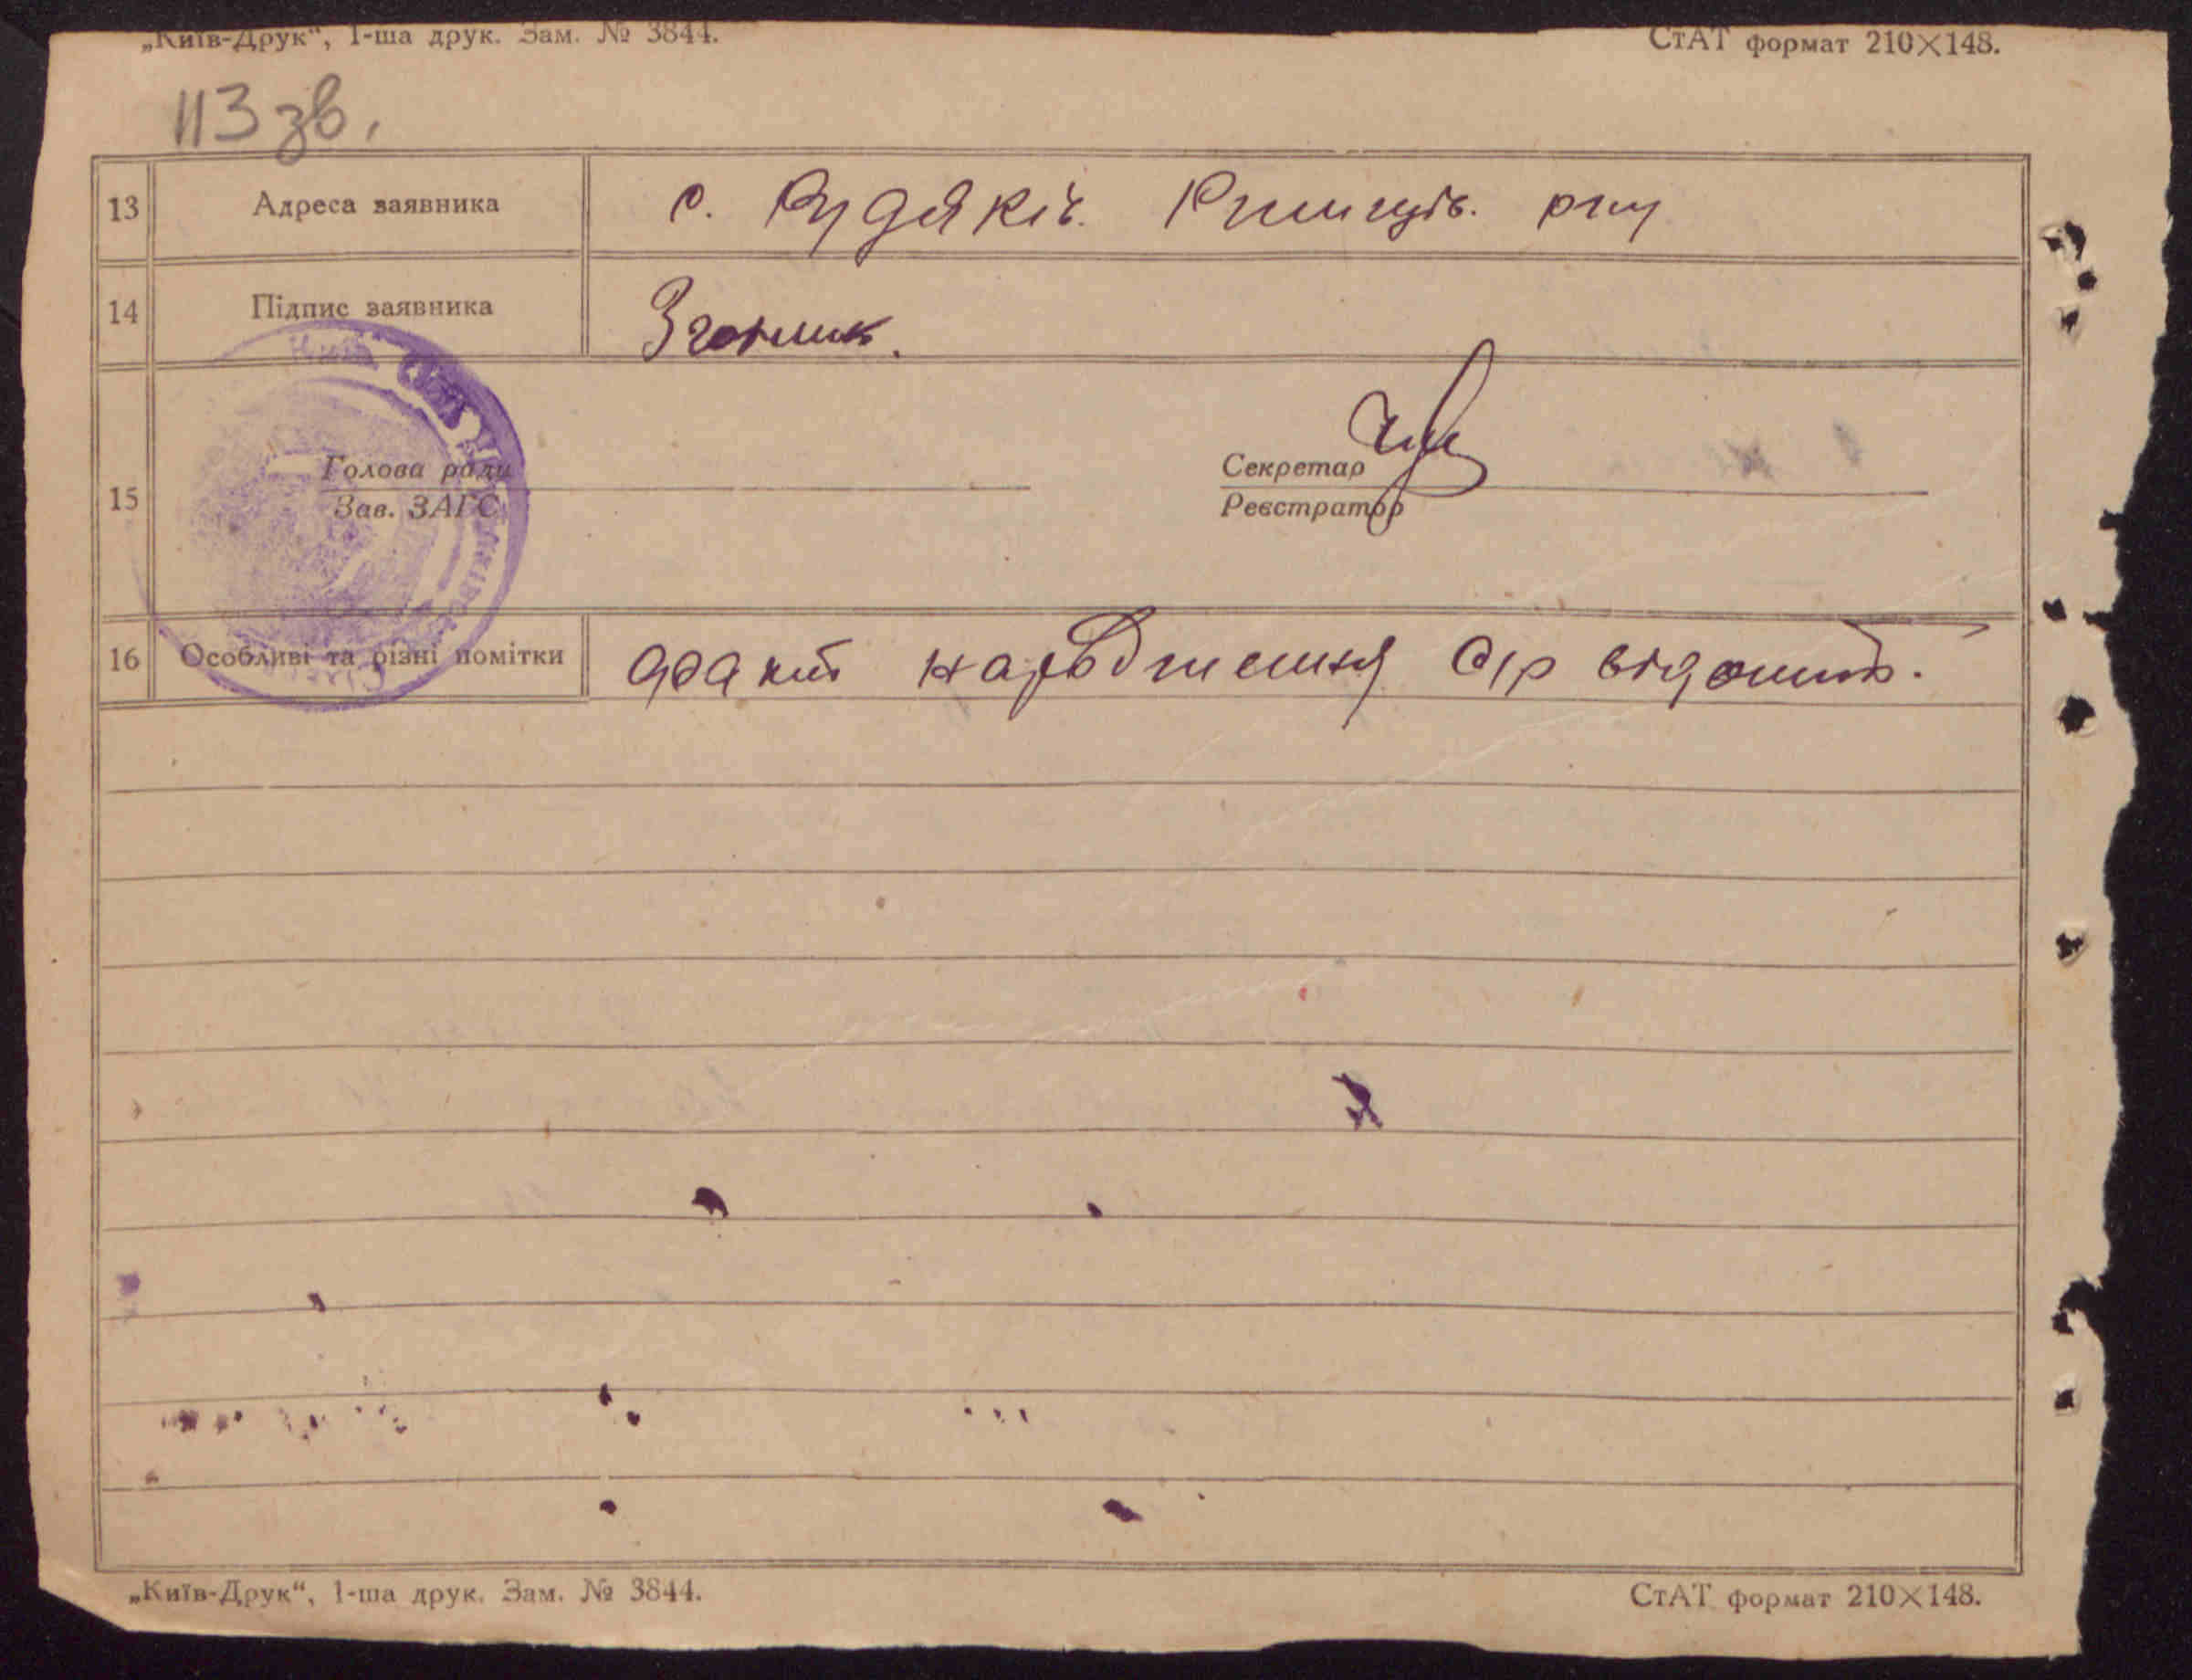 „Київ-Друк“, 1-ша друк. Зам. № 3844.
СтАТ формат 210×148.
113 зв.
13 Адреса заявника с. Рудяків.
14 Підпис заявника
15 Голова ради
Зав. ЗАГС
Секретар
Реєстратор
16 Особливі та різні помітки факт народження с/р
„Київ-Друк“, 1-ша друк. Зам. № 3844.
СтАТ формат 210×148.